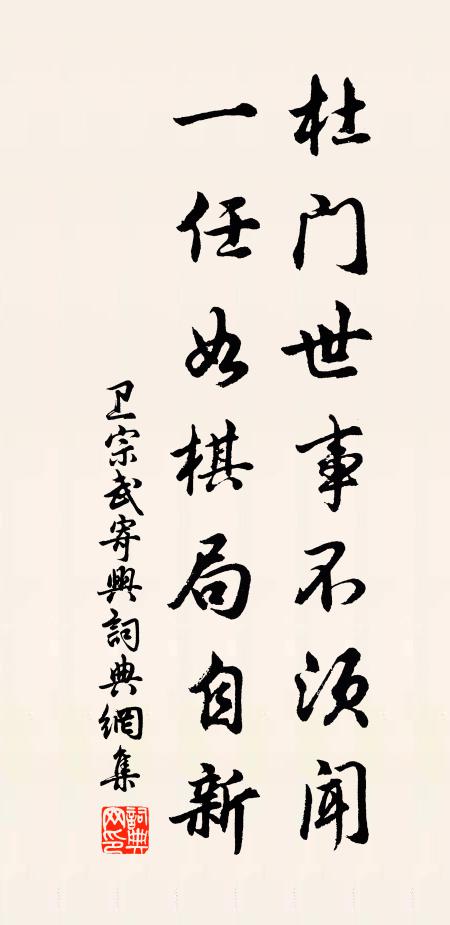 杜门世事不须闻
一任如棋局自新
卫宗武寄興詞典網集
詞典网印